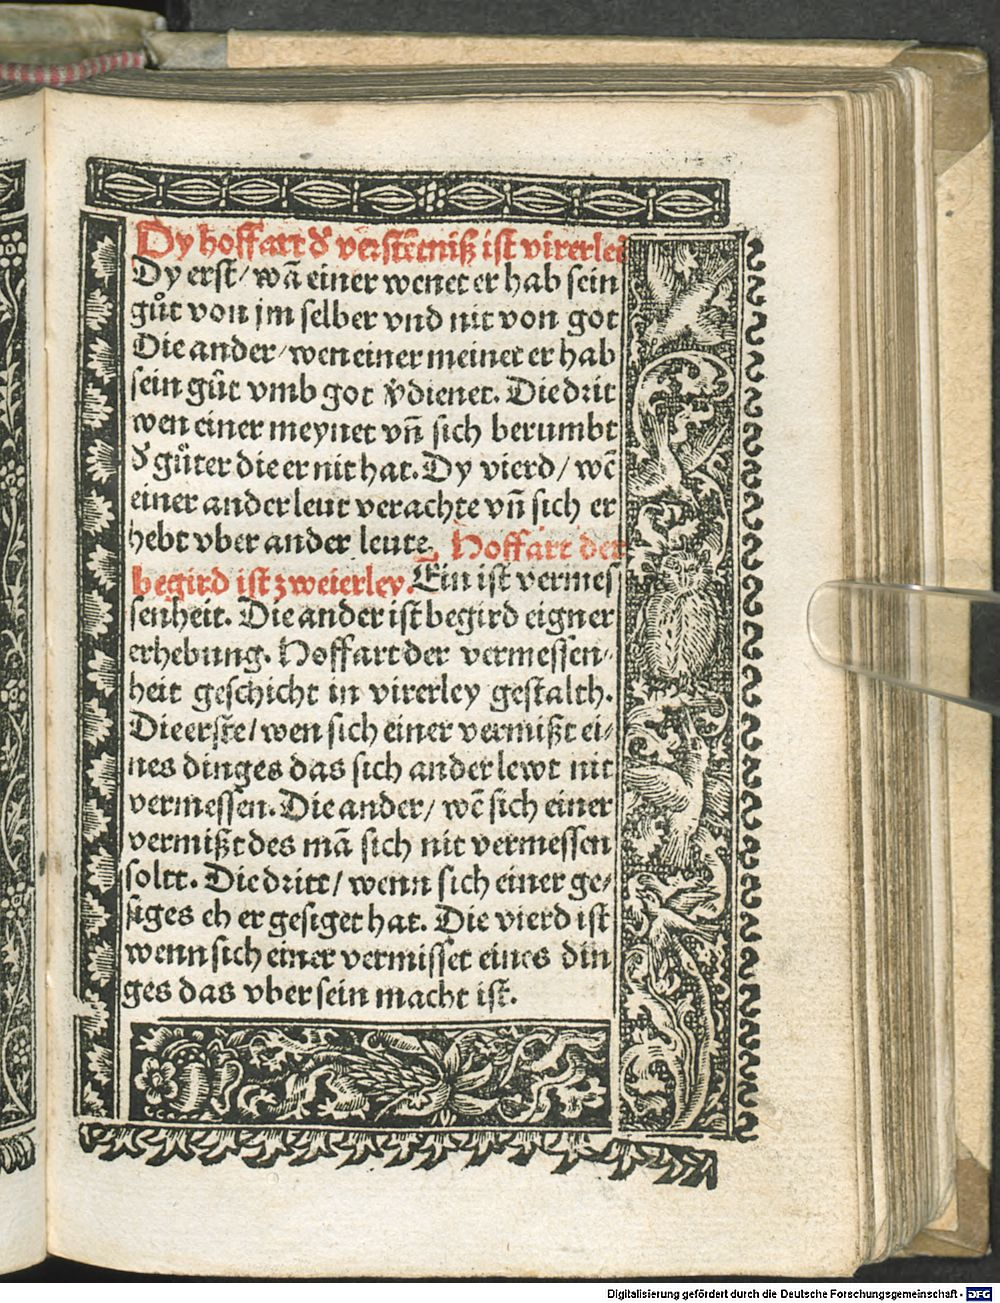 Dy hoffart d̕ verstētniß ist virerlei
Dy erst/ wā einer wenet er hab sein
gůt von jm selber vnd nit von got
Die ander/ wen einer meinet er hab
sein gůt vmb got v̕dienet. Die drit
wen einer meynet vn̄ sich berumbt
d̕ gůter die er nit hat. Dy vierd/ wē
einer ander leut verachte vn̄ sich er
hebt vber ander leute. Hoffart der
begird ist zweierley. Ein ist vermes
senheit. Die ander ist begird eigner
erhebung. Hoffart der vermessen⸗
heit geschicht in virerley gestalth.
Die erste/ wen sich einer vermißt ei⸗
nes dinges das sich ander lewt nit
vermessen. Die ander/ wē sich einer
vermißt des mā sich nit vermessen
soltt. Die dritt/ wenn sich einer ge⸗
siges eh er gesiget hat. Die vierd ist
wenn sich einer vermisset eines din
ges das vber sein macht ist.
Digitalisierung gefördert durch die Deutsche Forschungsgemeinschaft - DFG